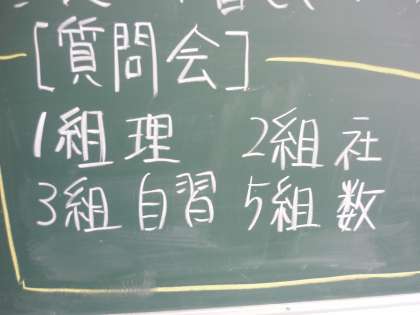 [質問会]
1組 理 2組 社
3組 自習 5組 数